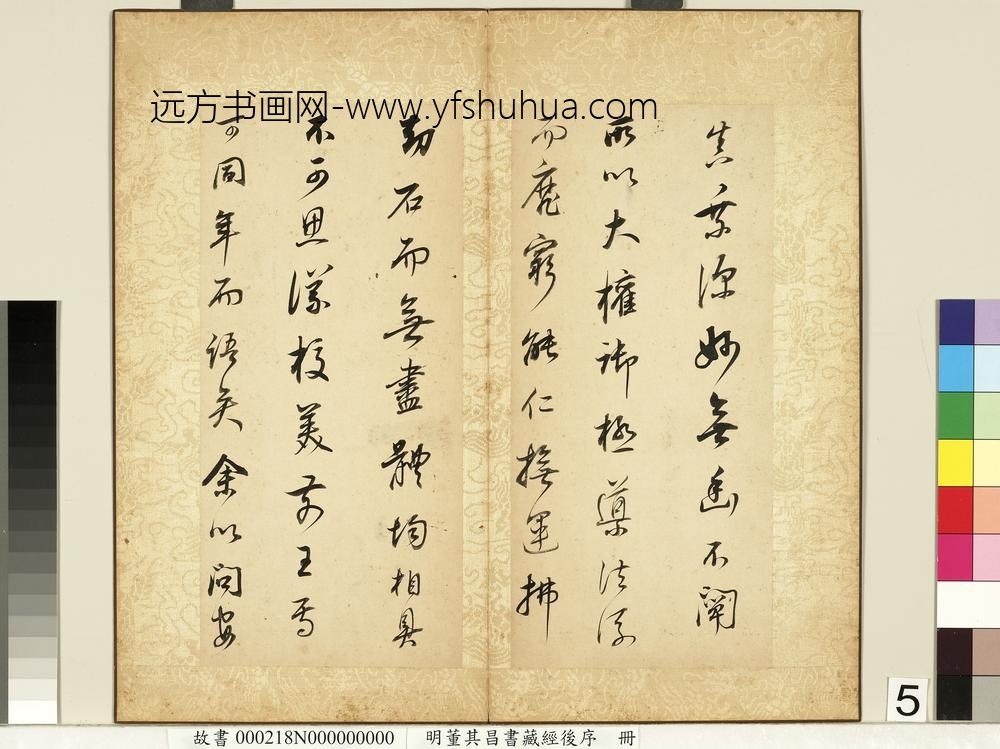 远方书画网-www.yfshuhua.com
真乘深妙無幽不闡
所以大權御極導法流
而靡窮能仁撫運拂
劫石而無盡體均相具
不可思議校美前王焉
可同年而語矣余以問安
5
故書 000218N000000000 明董其昌書藏經後序 冊